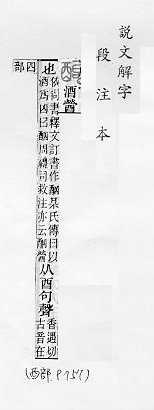 說文解字
段注本
酒醟
也依尙書釋文訂書作酗某氏傳曰以
酒爲凶曰酗周禮司救注亦云酗醟从酉句聲香遇切
古音在
四部
(酉部. P.757)